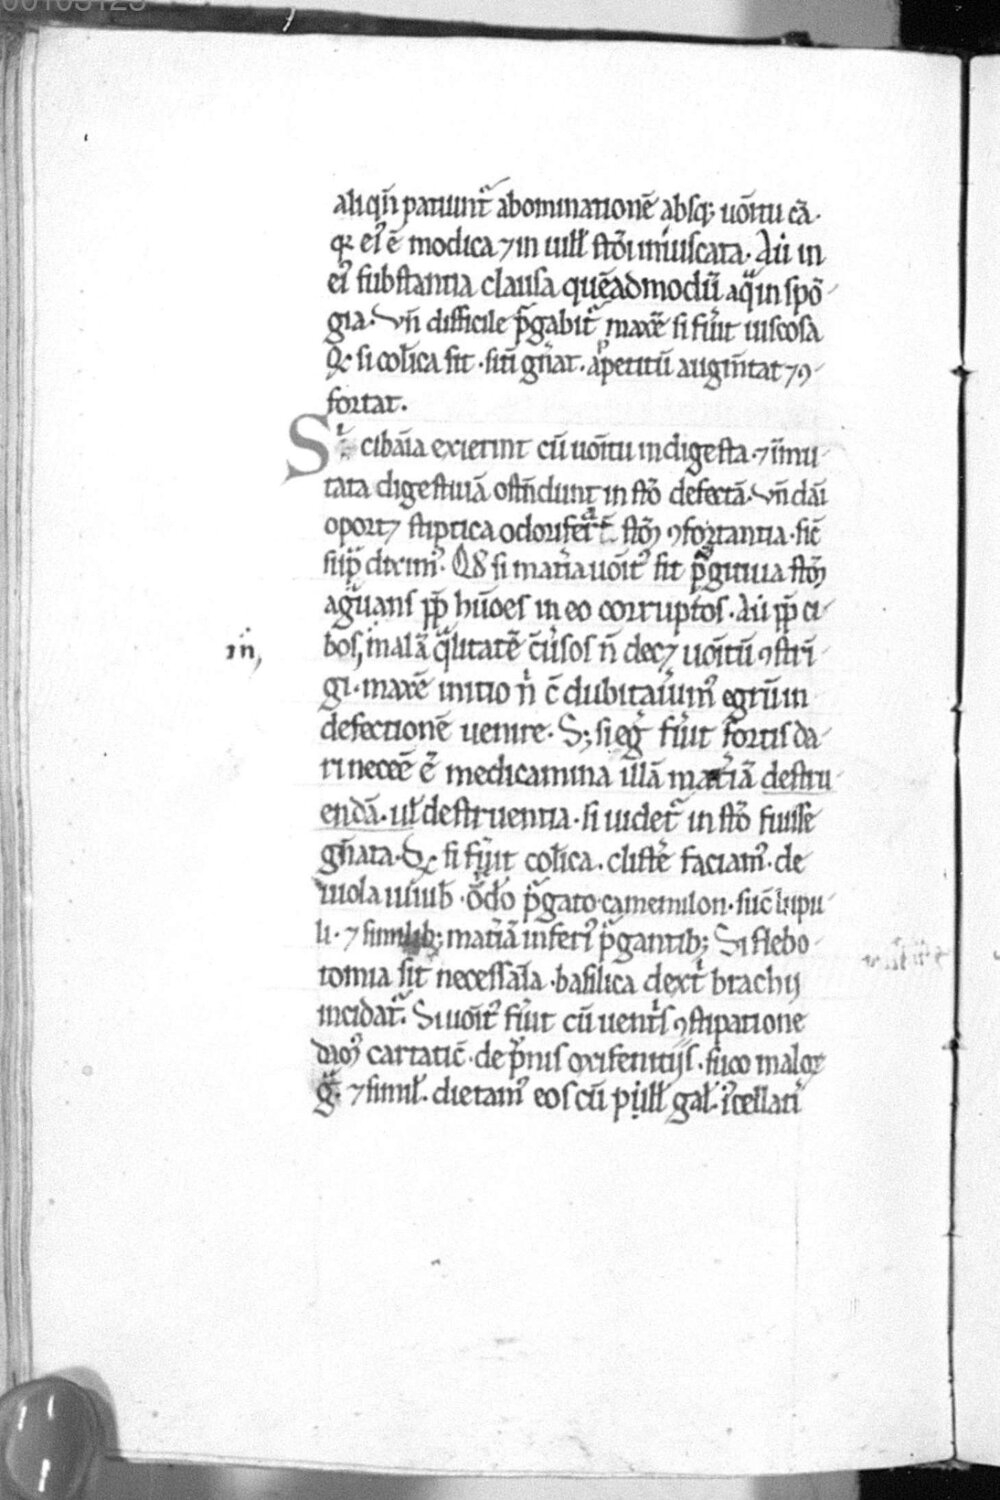 00103123
aliqn̄ patiunt᷑ abominationē absq; uōitu cā.
qꝛ eī ē modica ⁊ in uill' stōi inuiscata. Aū in
eī substantia clausa quēadmodū aqͣ in spō
gia. Vn̄ difficile p̄gabit᷑ maxē si fūit uiscosa
Sꝫ si col'ica sit. sitī gn̄at. ap̱etitū augm̄tat ⁊ ꝯ
fortat.
Sı cibaīa exierint cū uōitu indigesta. ⁊ īmu
tata digestiuā ostn̄dunt in stō defectā. Vn̄ dāı
oportꝫ stiptica odorifera stōꝫ ꝯfortantia. sic̄
sup̄ diximꝰ. Qđ si mat̄ia uōitꝰ sit p̄gitiua stōꝫ
agͣuans ꝓp̄ hūoes in eo corruptos. Aū ꝓp̄ ci
bos, malā qͣlitatē c̄ūsos n̄ decꝫ uōitū ꝯstrī
in,
gi. maxē initio n̄ c̄ dubitauimꝰ egrū in
defectionē uenire. Sꝫ si eḡ fūit fortis da
ri neceē ē medicamina illā mat̄iā destru
endā. ul' destruentia. si uidet᷑ in stō fuisse
gn̄ata. Sꝫ si fūit col'ica. clistē faciamꝰ. de
uiola uiuub̄. ōdo p̄gato. camemilon. suc̄ lupu
li. ⁊ similib; mat̄iā inferiꝰ p̄gantib; Si flebo
tomia sit necessaīa. basilica dext̄ brachij
incidat᷑. Si uōitꝰ fūit cū uent̄s ꝯstipatione
daꝯꝰ cartatic̄. de p̄nis oxifenitijs. suco maloꝝ
gͣ. ⁊ simil'. dietamꝰ eos cū pull' gal'. īcellati